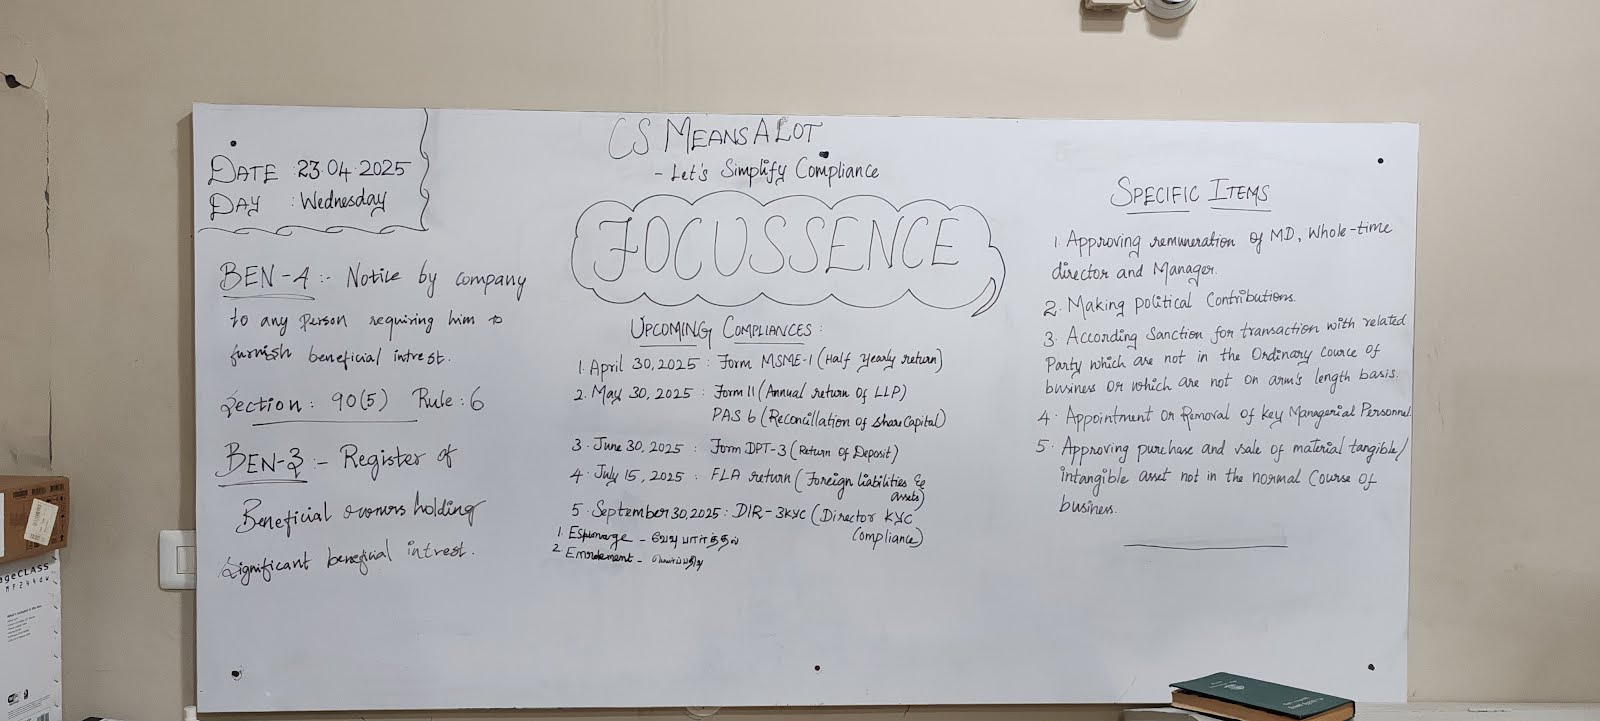 DATE : 23.04.2025
DAY : Wednesday
BEN-4 :- Notice by company
to any Person requiring him to
furnish beneficial intrest.
Section : 90(5) Rule : 6
BEN-3 :- Register of
Beneficial owners holding
Significant beneficial intrest.
CS MEANS A LOT
- Let's Simplify Compliance
FOCUSSENCE
UPCOMING COMPLIANCES :
1. April 30, 2025 : Form MSME-1 (Half Yearly return)
2. May 30, 2025 : Form 11 (Annual return of LLP)
PAS 6 (Reconcillation of Share Capital)
3. June 30, 2025 : Form DPT-3 (Return of Deposit)
4. July 15, 2025 : FLA return (Foreign liabilities &
assets)
5. September 30, 2025 : DIR-3KYC (Director KYC
Compliance)
1. Espionage -
2.
SPECIFIC ITEMS
1. Approving remuneration of MD, Whole-time
director and Manager.
2. Making political Contributions.
3. According Sanction for transaction with related
Party which are not in the Ordinary Cource of
business or which are not on arm's length basis.
4. Appointment or Removal of Key Managerial Personnel
5. Approving purchase and sale of material tangible/
intangible asset not in the normal Course of
business.
ageCLASS